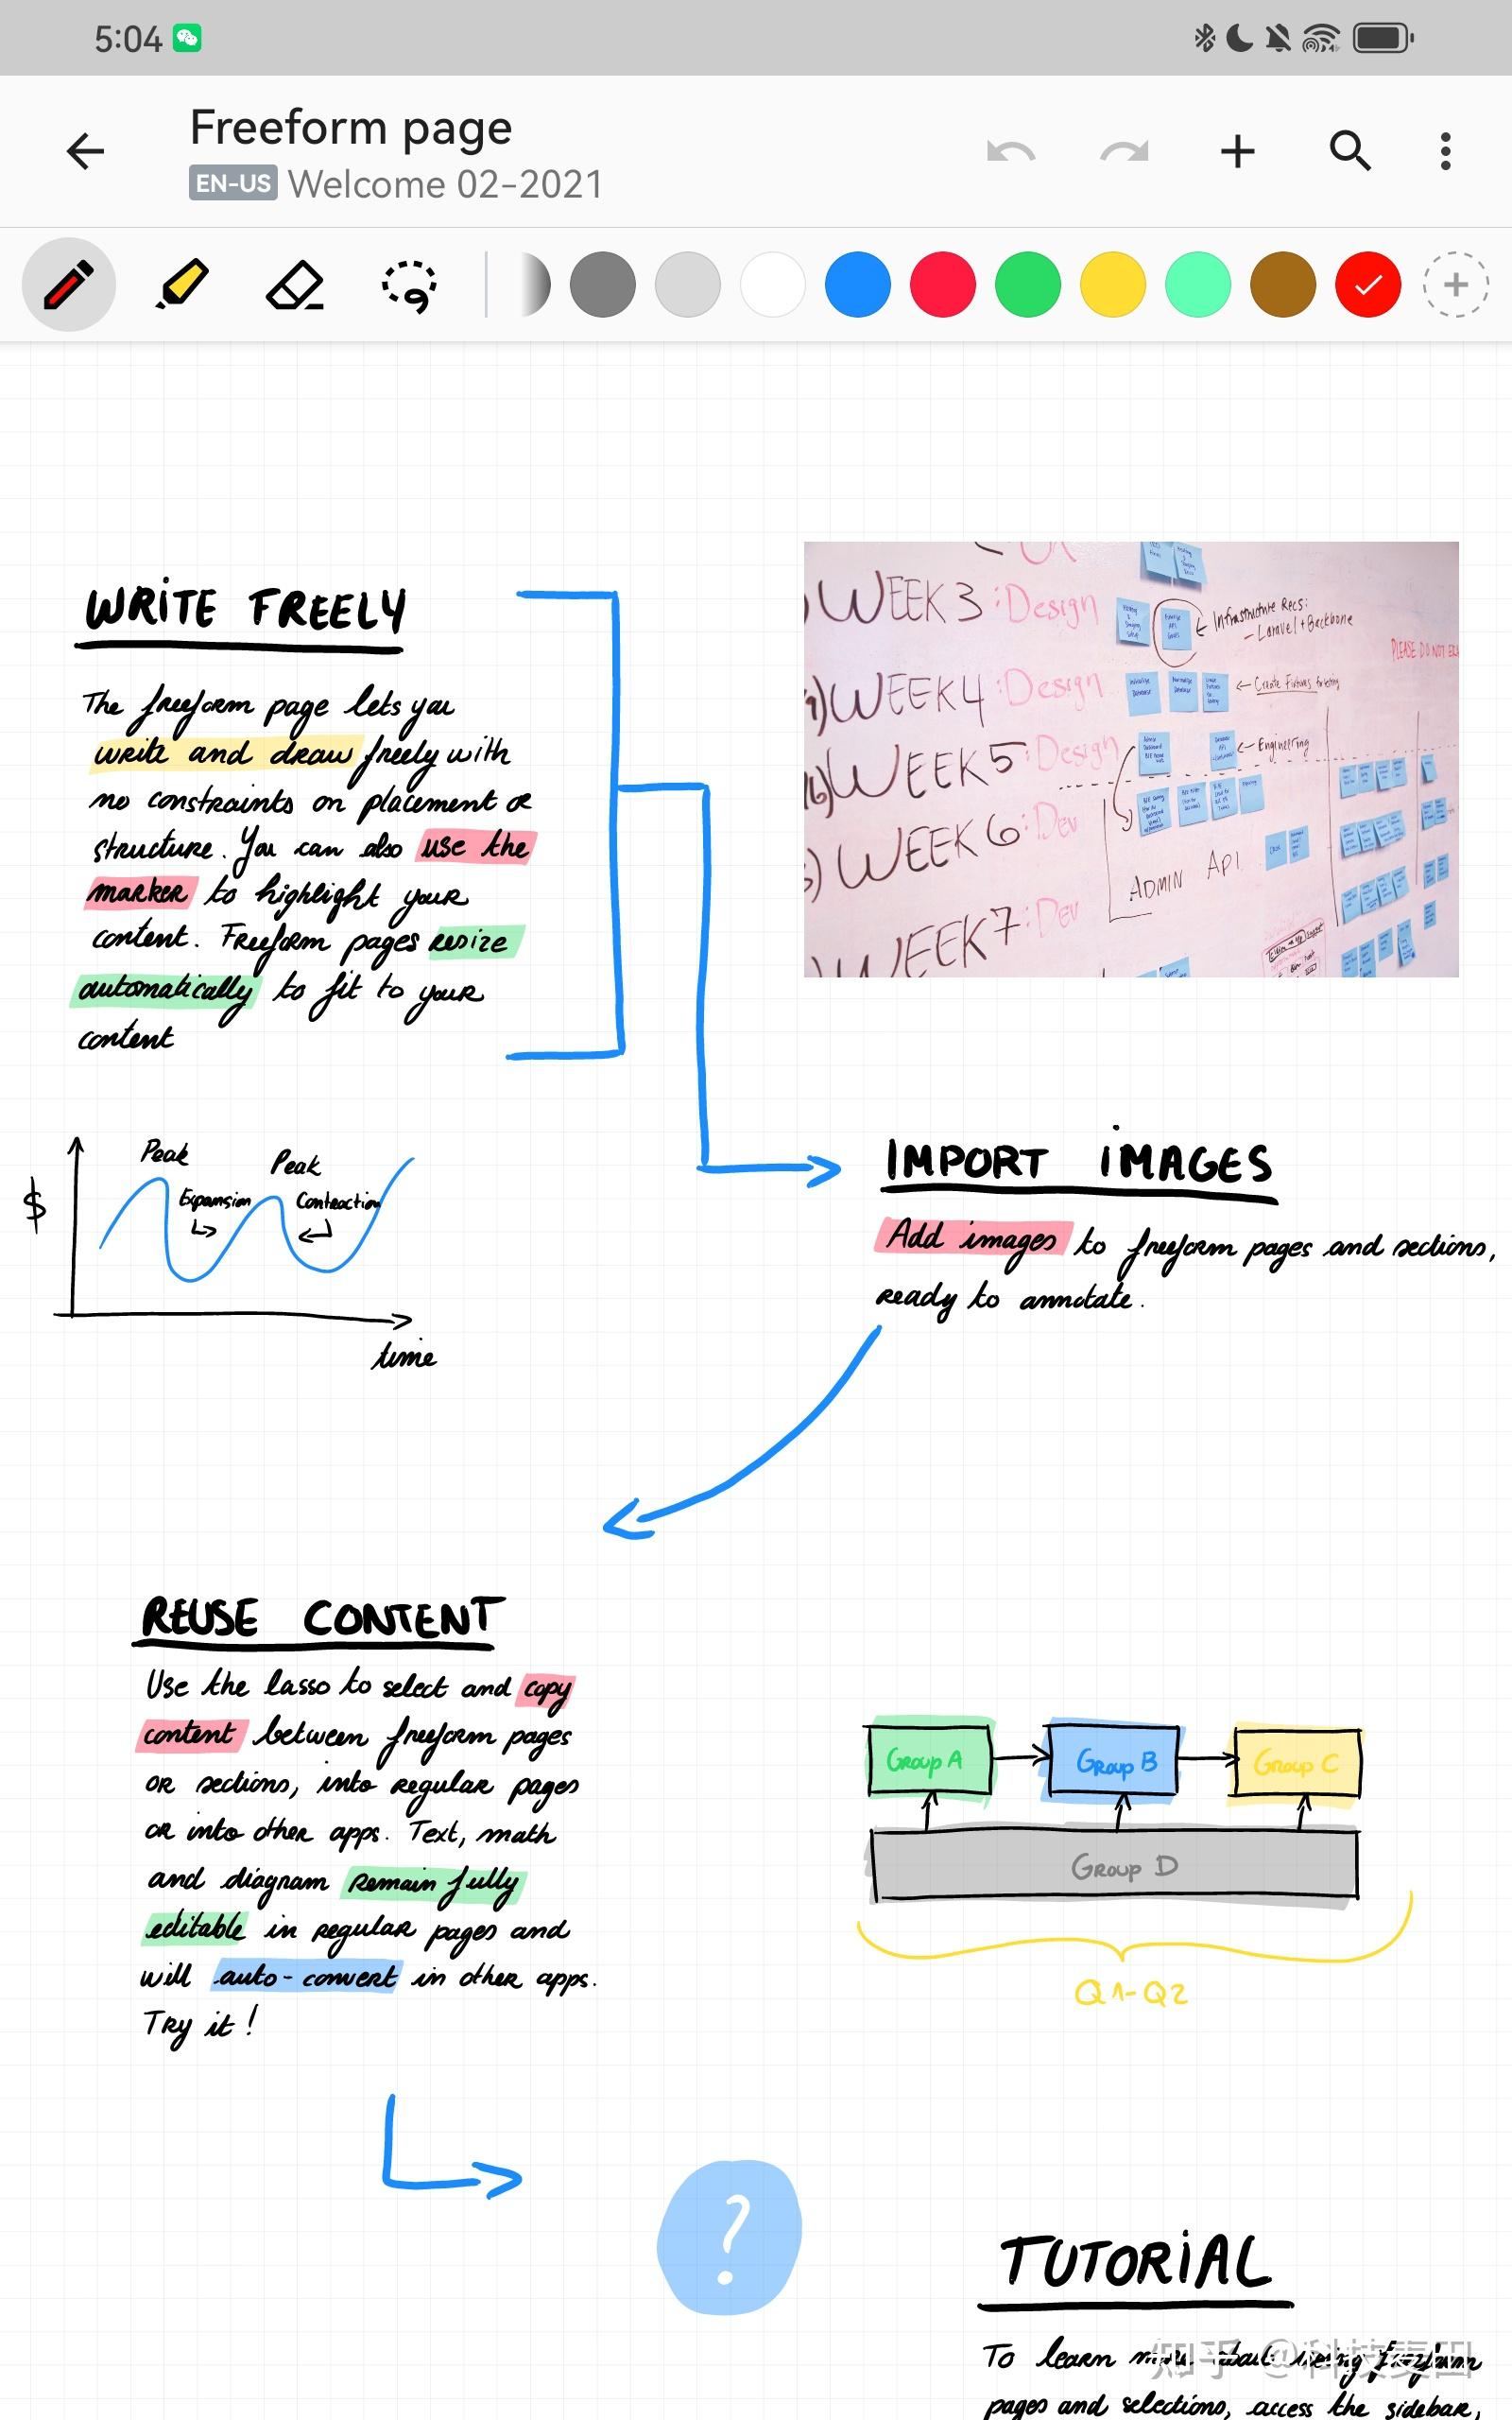 5:04
Freeform page
EN-US Welcome 02-2021
WRITE FREELY
The freeform page lets you
write and draw freely with
no constraints on placement or
structure. You can also use the
marker to highlight your
content. Freeform pages resize
automatically to fit to your
content
WEEK 3: Design
Infrastructure Recs:
- Laravel + Backbone
PLEASE DO NOT
WEEK 4: Design
Create Fixtures for testing
WEEK 5: Design
Engineering
WEEK 6: Dev
ADMIN API
WEEK 7: Dev
Peak
Peak
$
Expansion
Contraction
time
IMPORT IMAGES
Add images to freeform pages and sections,
ready to annotate.
REUSE CONTENT
Use the lasso to select and copy
content between freeform pages
or sections, into regular pages
or into other apps. Text, math
and diagram remain fully
editable in regular pages and
will auto-convert in other apps.
Try it!
Group A
Group B
Group C
Group D
Q1-Q2
?
TUTORIAL
To learn more about using freeform
pages and selections, access the sidebar,
知乎 @科技麦田